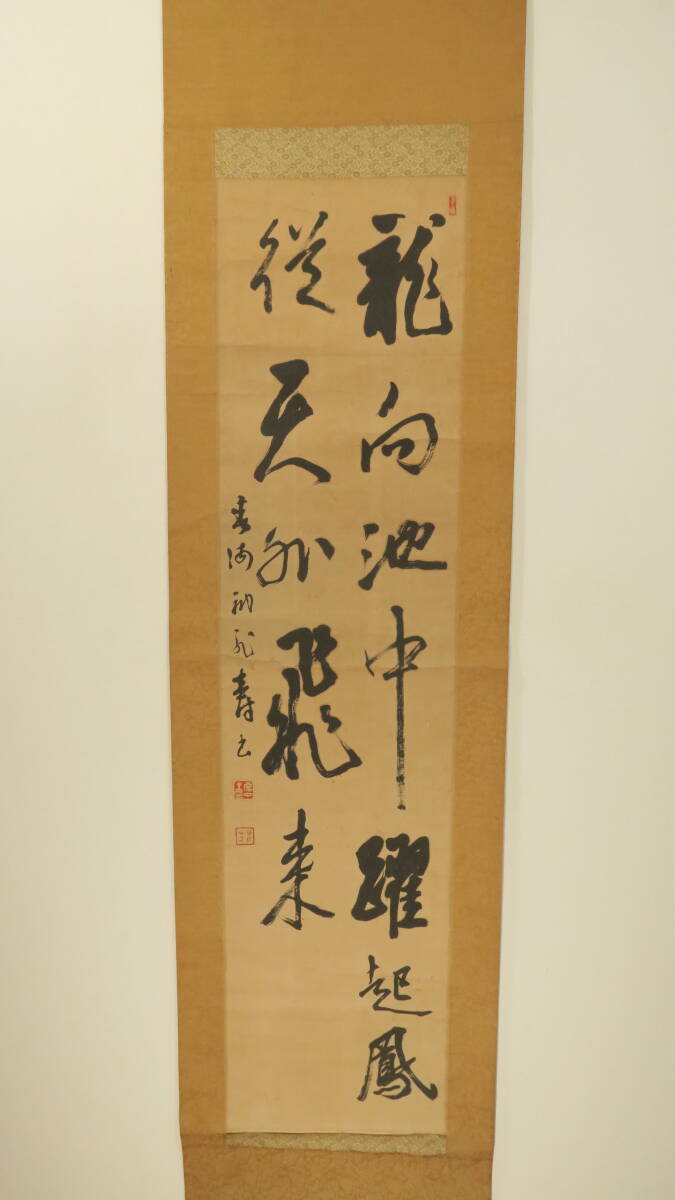 龍向池中躍起鳳
從天外飛来
壽書